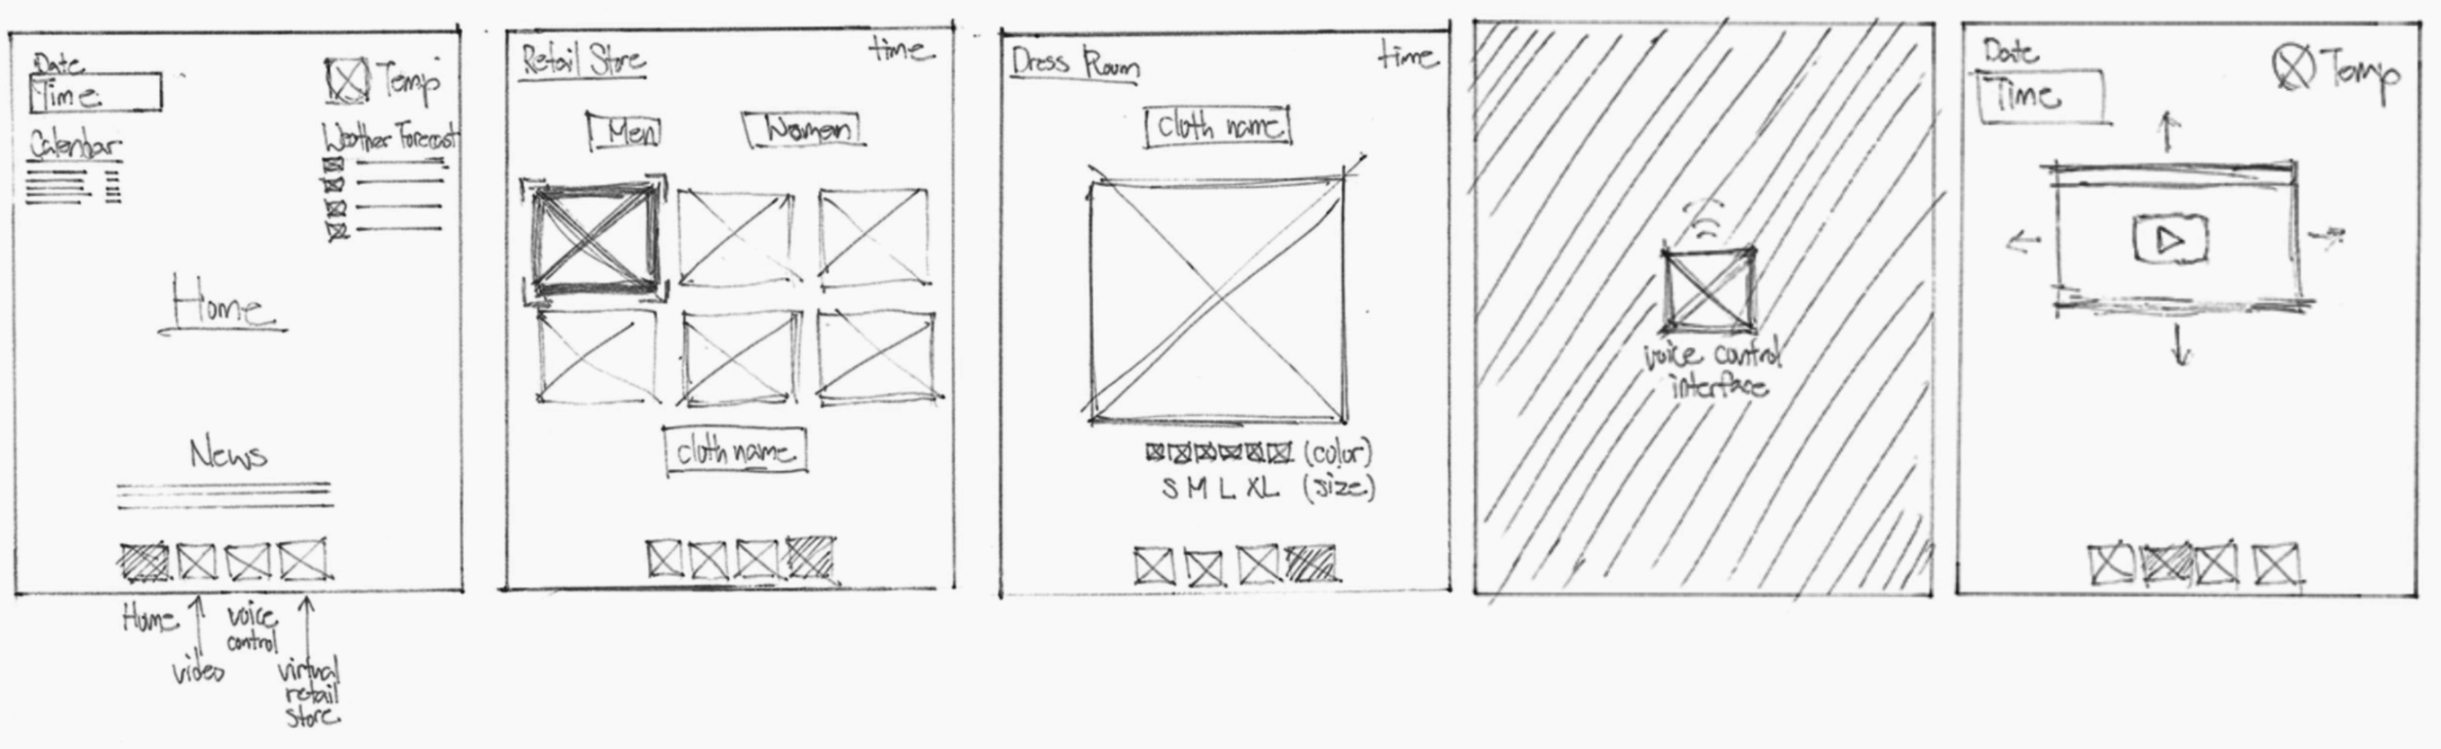 Date
Time
Temp
Calendar
Weather Forecast
Home
News
Home
voice
control
video
virtual
retail
store
Retail Store
time
Men
Women
cloth name
Dress Room
time
cloth name
(color)
S M L XL (size)
voice control
interface
Date
Time
Temp